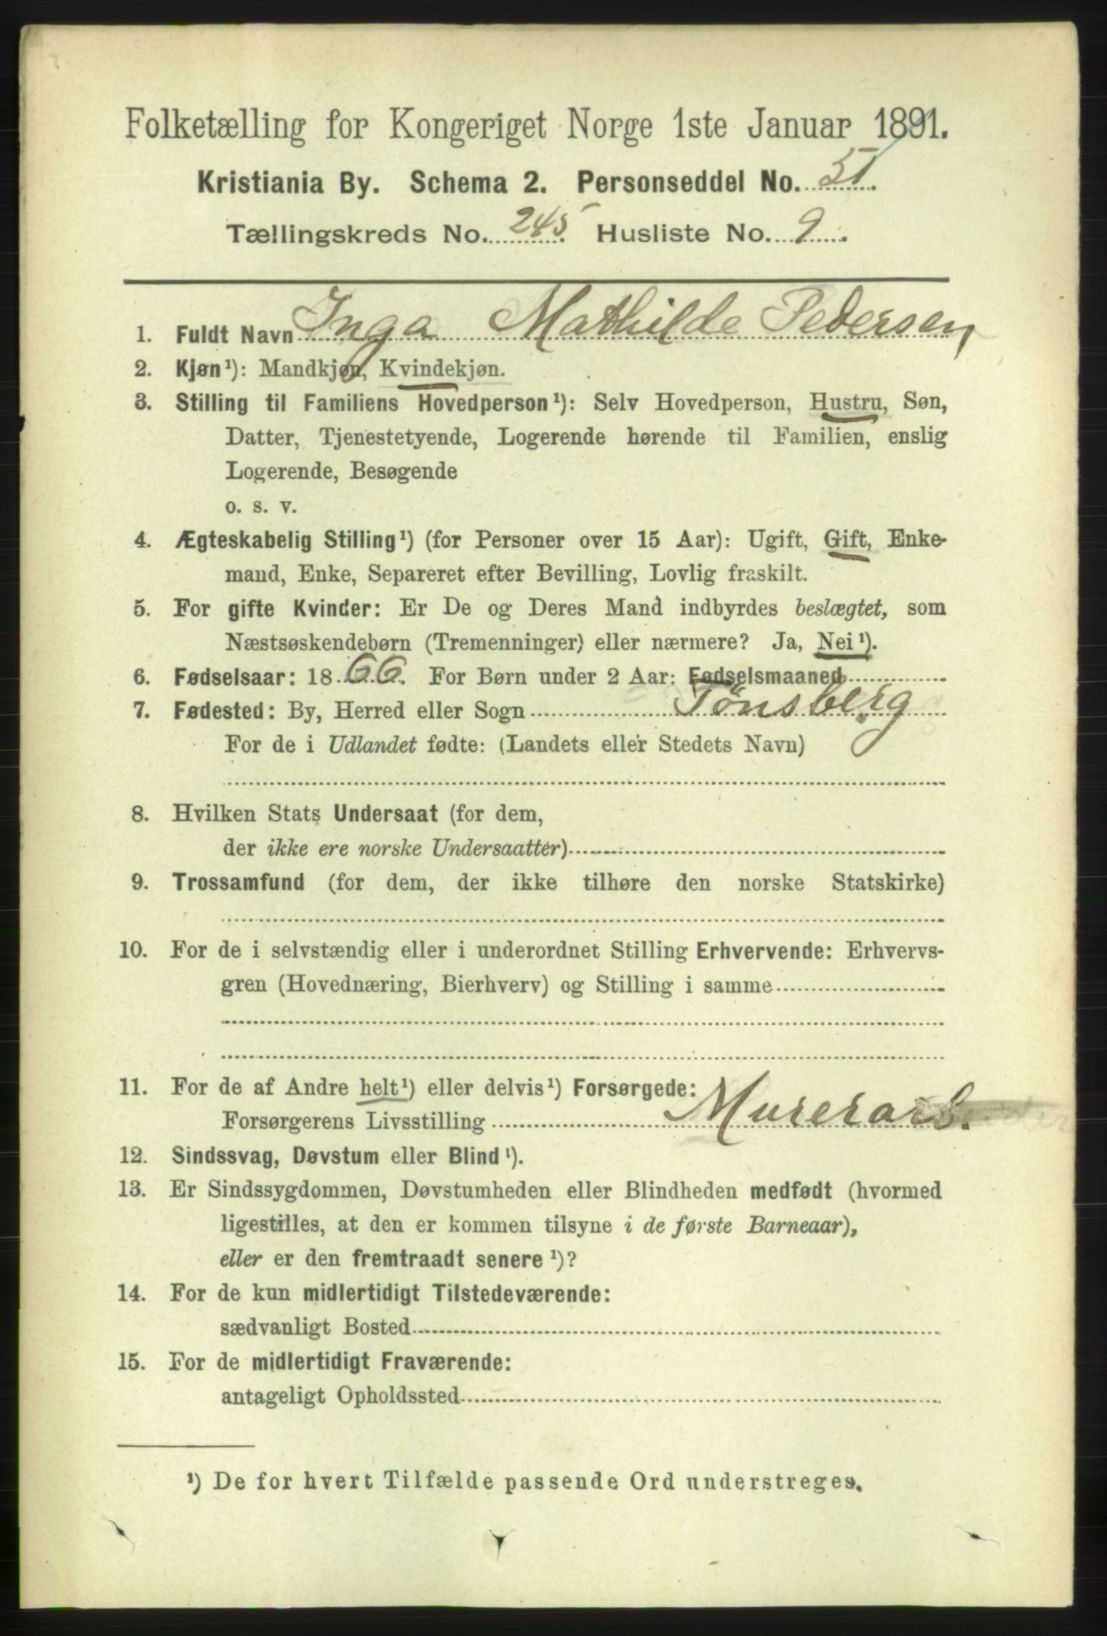 Folketælling for Kongeriget Norge 1ste Januar 1891.
Kristiania By. Schema 2. Personseddel No. 51.
Tællingskreds No. 245 Husliste No. 9
1. Fuldt Navn Inga Mathilde Pedersen,
2. Kjøn¹): Mandkjøn, Kvindekjøn.
3. Stilling til Familiens Hovedperson¹): Selv Hovedperson, Hustru, Søn,
Datter, Tjenestetyende, Logerende hørende til Familien, enslig
Logerende, Besøgende
o. s. v.
4. Ægteskabelig Stilling¹) (for Personer over 15 Aar): Ugift, Gift, Enke-
mand, Enke, Separeret efter Bevilling, Lovlig fraskilt.
5. For gifte Kvinder: Er De og Deres Mand indbyrdes beslægtet, som
Næstsøskendebørn (Tremenninger) eller nærmere? Ja, Nei¹).
6. Fødselsaar: 1866. For Børn under 2 Aar: Fødselsmaaned
7. Fødested: By, Herred eller Sogn Tønsberg
For de i Udlandet fødte: (Landets eller Stedets Navn)
8. Hvilken Stats Undersaat (for dem,
der ikke ere norske Undersaatter)
9. Trossamfund (for dem, der ikke tilhøre den norske Statskirke)
10. For de i selvstændig eller i underordnet Stilling Erhvervende: Erhvervs-
gren (Hovednæring, Bierhverv) og Stilling i samme
11. For de af Andre helt¹) eller delvis¹) Forsørgede:
Forsørgerens Livsstilling Murerarb.
12. Sindssvag, Døvstum eller Blind¹).
13. Er Sindssygdommen, Døvstumheden eller Blindheden medfødt (hvormed
ligestilles, at den er kommen tilsyne i de første Barneaar),
eller er den fremtraadt senere¹)?
14. For de kun midlertidigt Tilstedeværende:
sædvanligt Bosted
15. For de midlertidigt Fraværende:
antageligt Opholdssted
¹) De for hvert Tilfælde passende Ord understreges.